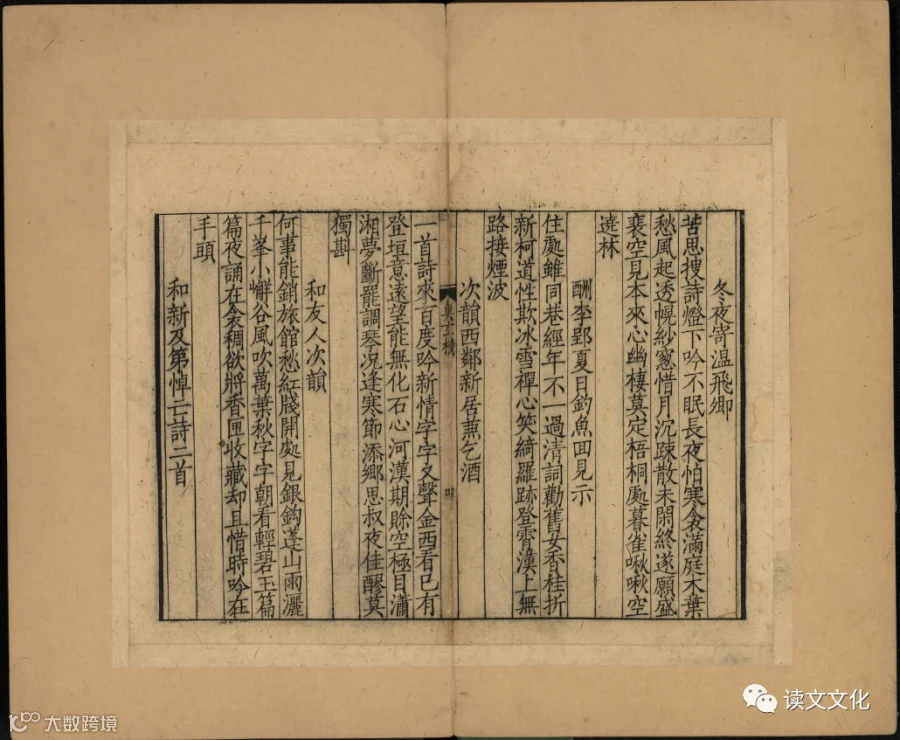 冬夜寄温飛卿
苦思搜詩燈下吟不眠長夜怕寒衾滿庭木葉
愁風起透幌紗窗惜月沉踈散未閑終遂願盛
衰空見本來心幽棲莫定梧桐處暮雀啾啾空
遶林
酬李郢夏日釣魚回見示
住處雖同巷經年不一過清詞勸舊女香桂折
新柯道性欺冰雪禪心笑綺羅跡登霄漢上無
路接煙波
次韻西鄰新居兼乞酒
一首詩來百度吟新情字字又聲金西看已有
登垣意遠望能無化石心河漢期賒空極目瀟
湘夢斷罷調琴况逢寒節添鄉思叔夜佳醪莫
獨斟
和友人次韻
何事能銷旅館愁紅牋開處見銀鈎蓬山雨灑
千峯小嶰谷風吹萬葉秋字字朝看輕碧玉篇
篇夜誦在衾稠欲將香匣收藏却且惜時吟在
手頭
和新及第悼亡詩二首
读文文化
大数跨境